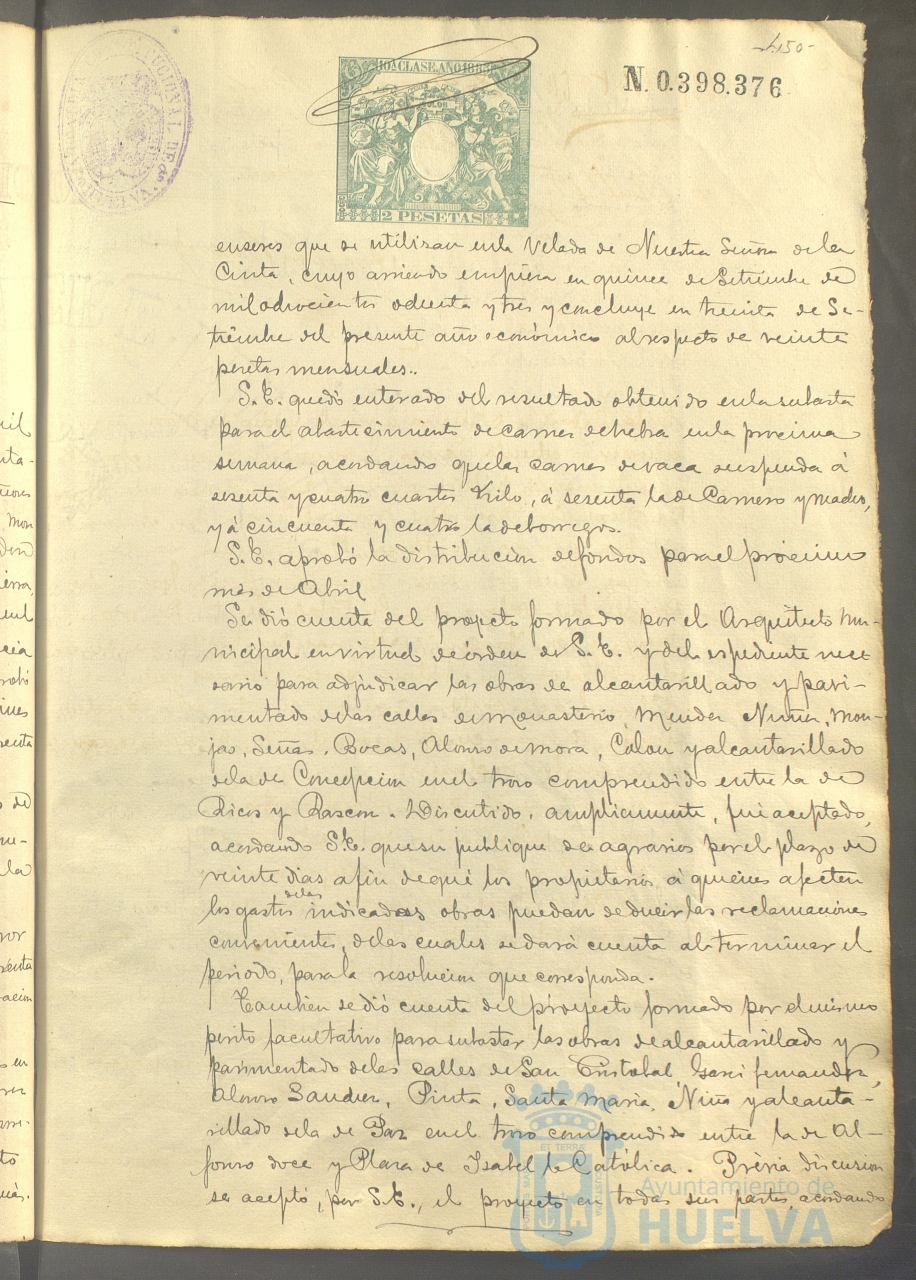 150
N. 0.398.376
10ª CLASE. AÑO 188
2 PESETAS
enseres que se utilizan en la Velada de Nuestra Señora de la
Cinta, cuyo arriendo empieza en quince de Setiembre de
mil ochocientos ochenta y tres y concluye en treinta de Se-
tiembre del presente año económico al respecto de veinte
pesetas mensuales.
S. E. quedó enterado del resultado obtenido en la subasta
para el abastecimiento de carnes de hebra en la procsima
semana, acordando que las carnes de vaca se espenda á
sesenta y cuatro cuartos Kilo, á sesenta la de Carnero y macho,
y á cincuenta y cuatro la de borregos.
S. E. aprobó la distribucion de fondos para el procsimo
mes de Abril
Se dió cuenta del proyecto formado por el Arquitecto mu-
nicipal en virtud de órden de S. E. y del espediente nece
sario para adjudicar las obras de alcantarillado y pavi-
mentado de las calles de Monasterio, Mendez Nuñez, Mon-
jas, Señas, Bocas, Alonso de Mora, Colon y alcantarillado
de la de Concepcion en el trozo comprendido entre la de
Ricos y Rascon. Discutido, ampliamente, fué aceptado,
acordando S. E. que se publique por el plazo de
veinte dias a fin de qué los propietarios, á quienes afecten
los gastos de las indicadas obras puedan deducir las reclamaciones
convenientes, de las cuales se dará cuenta al terminar el
periodo, para la resolucion que corresponda.
Tambien se dió cuenta del proyecto formado por el mismo
perito facultativo para subastar las obras de alcantarillado y
pavimentado de las calles de San Cristobal Garci fernandez,
Alonso Sanchez, Pinta, Santa Maria, Niña y alcanta-
rillado de la de Paz en el trozo comprendido entre la de Al-
fonso doce y Plaza de Isabel la Católica. Prévia discusion
se aceptó, por S. E., el proyecto en todas sus partes, acordando
Ayuntamiento de
HUELVA